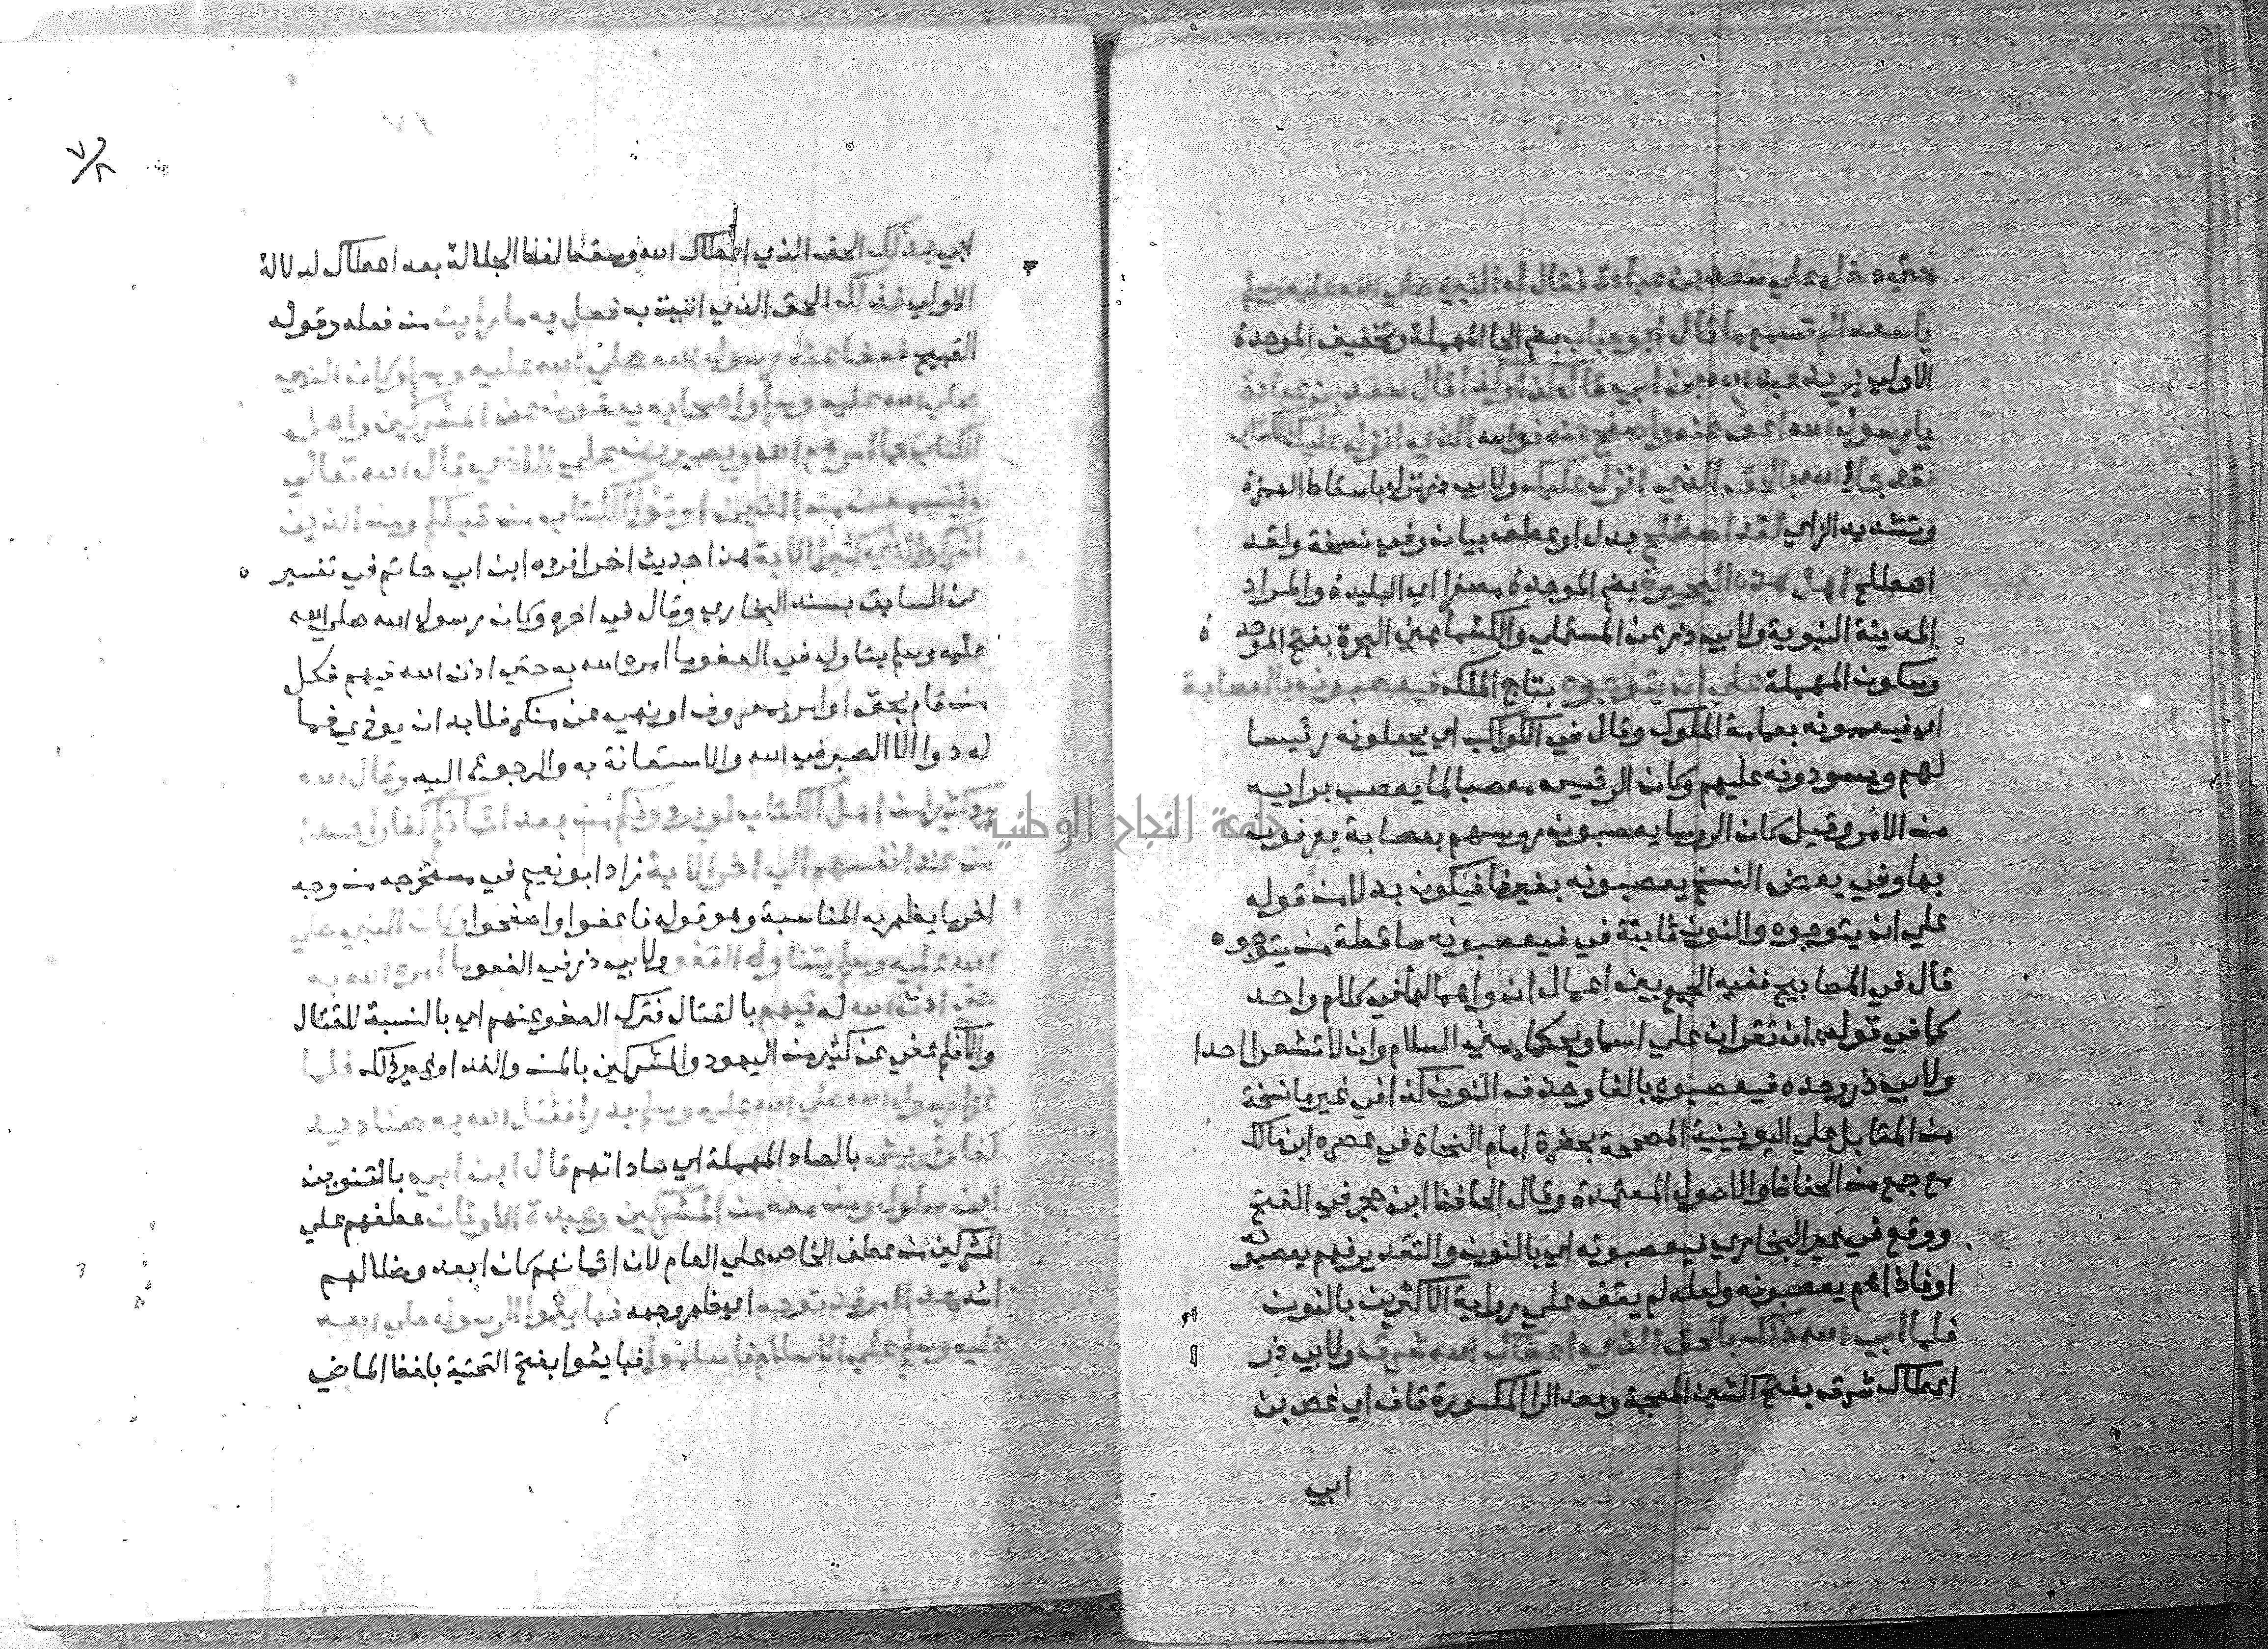 حتي دخل علي سعد بن عبادة فقال له النبي صلي الله عليه وسلم
يا سعد الم تسمع ما قال ابو حباب بضم الحا المهملة وتخفيف الموحدة
الاولي يريد عبد الله بن ابي قال كذا وكذا قال سعد بن عبادة
يا رسول الله اعف عنه واصفح عنه فوالله الذي انزل عليك الكتاب
لقد جا الله بالحق الذي انزل عليك ولابي ذر نزل باسقاط الهمزة
وتشديد الزاي لقد اصطلح بدل او عطف بيان وفي نسخة ولقد
اصطلح اهل هذه البحيرة بضم الموحدة مصغرا اي البليدة والمراد
المدينة النبوية ولابي ذر عن المستملي والكشميهني البحرة بفتح الموحدة
وسكون المهملة علي ان يتوجوه بتاج الملك فيعصبونه بالعصابة
اي فيعممونه بعمامة الملوك وقال في الكواكب اي يجعلونه رئيسا
لهم ويسودونه عليهم وكان الرئيس معصبا لما يعصب برايه
من الامر وقيل كان الروسا يعصبون روسهم بعصابة يعرفون
بها وفي بعض النسخ يعصبونه بغير فا فيكون بدلا من قوله
علي ان يتوجوه والنون ثابتة في فيعصبونه ساقطة من يتوجوه
قال في المصابيح ففيه الجمع بين اعمال ان واهمالها في كلام واحد
كما في قوله ان تقران علي اسما ويحكما مني السلام وان لا تشعرا احدا
ولابي ذر وحده فيعصبوه بالفا وحذف النون كذا في غير ما نسخة
من المقابل علي اليونينية المصححة بحضرة امام النحاة في عصره ابن مالك
مع جمع من الحفاظ والاصول المعتمدة وقال الحافظ ابن حجر في الفتح
ووقع في غير البخاري فيعصبونه اي بالنون والتقدير فهم يعصبونه
او فاذا هم يعصبونه ولعله لم يقف علي رواية الاكثرين بالنون
فلما ابي الله ذلك بالحق الذي اعطاك الله شرق ولابي ذر
اعطاك شرق بفتح الشين المعجمة وبعد الرا المكسورة قاف اي غص بن
ابي
٧٢
لابي بذلك الحق الذي اعطاك الله وسقط لفظ الجلالة بعد اعطاك لدلالة
الاولي فذلك الحق الذي اتيت به فعل به ما رايت من فعله وقوله
القبيح فعفا عنه رسول الله صلي الله عليه وسلم وكان النبي
صلي الله عليه وسلم واصحابه يعفون عن المشركين واهل
الكتاب كما امرهم الله ويصبرون علي الاذي قال الله تعالي
ولتسمعن من الذين اوتوا الكتاب من قبلكم ومن الذين
اشركوا اذي كثيرا الاية هذا حديث اخر افرده ابن ابي حاتم في تفسير
عن السابق بسند البخاري وقال في اخره وكان رسول الله صلي الله
عليه وسلم يتاول في العفو ما امره الله به حتي اذن الله فيهم فكل
من قام بحق او امر بمعروف او نهي عن منكر فلا بد ان يوذي فما
له دوا الا الصبر في الله والاستعانة به والرجوع اليه وقال الله
ود كثير من اهل الكتاب لو يردونكم من بعد ايمانكم كفارا حسدا
من عند انفسهم الي اخر الاية زاد ابو نعيم في مستخرجه من وجه
اخر ما يظهر به المناسبة وهو قوله فاعفوا واصفحوا وكان النبي صلي
الله عليه وسلم يتاول العفو ولابي ذر في العفو ما امره الله به
حتي اذن الله له فيهم بالقتال فترك العفو عنهم اي بالنسبة للقتال
والا فكم عفي عن كثير من اليهود والمشركين بالمن والفدا وغير ذلك فلما
غزا رسول الله صلي الله عليه وسلم بدرا فقتل الله به صناديد
كفار قريش بالصاد المهملة اي ساداتهم قال ابن ابي بالتنوين
ابن سلول ومن معه من المشركين وعبدة الاوثان عطفهم علي
المشركين من عطف الخاص علي العام لان ايمانهم كان ابعد وضلالهم
اشد هذا امر قد توجه اي ظهر وجهه فبايعوا الرسول صلي الله
عليه وسلم علي الاسلام فاسلموا فبايعوا بفتح التحتية بلفظ الماضي
جامعة النجاح الوطنية